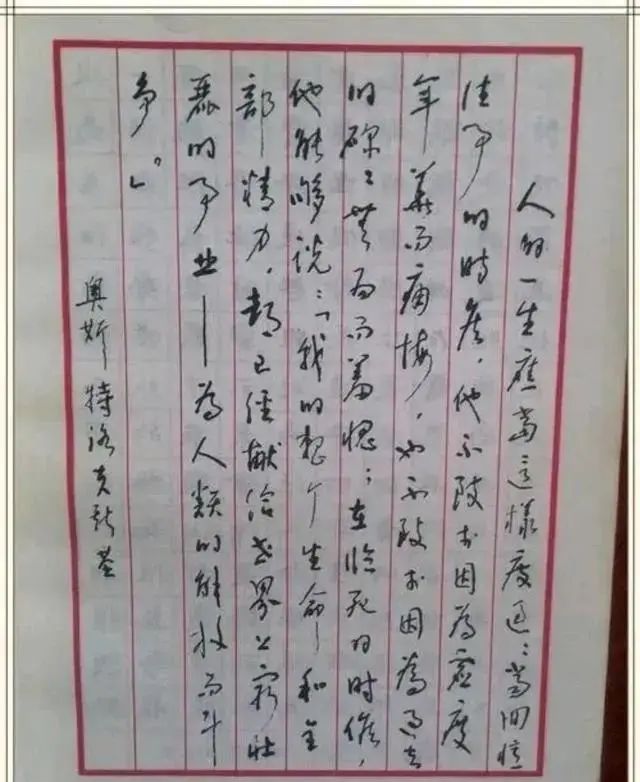 人的一生應當這樣度过：當回憶
往事的時候，他不致於因為虛度
年華而痛悔，也不致於因為过去
的碌々無为而羞愧；在临死的时候，
他能够说：「我的整个生命和全
部精力，都已經献给世界上最壮
麗的事业——為人類的解放而斗
争。」
奥斯特洛夫斯基